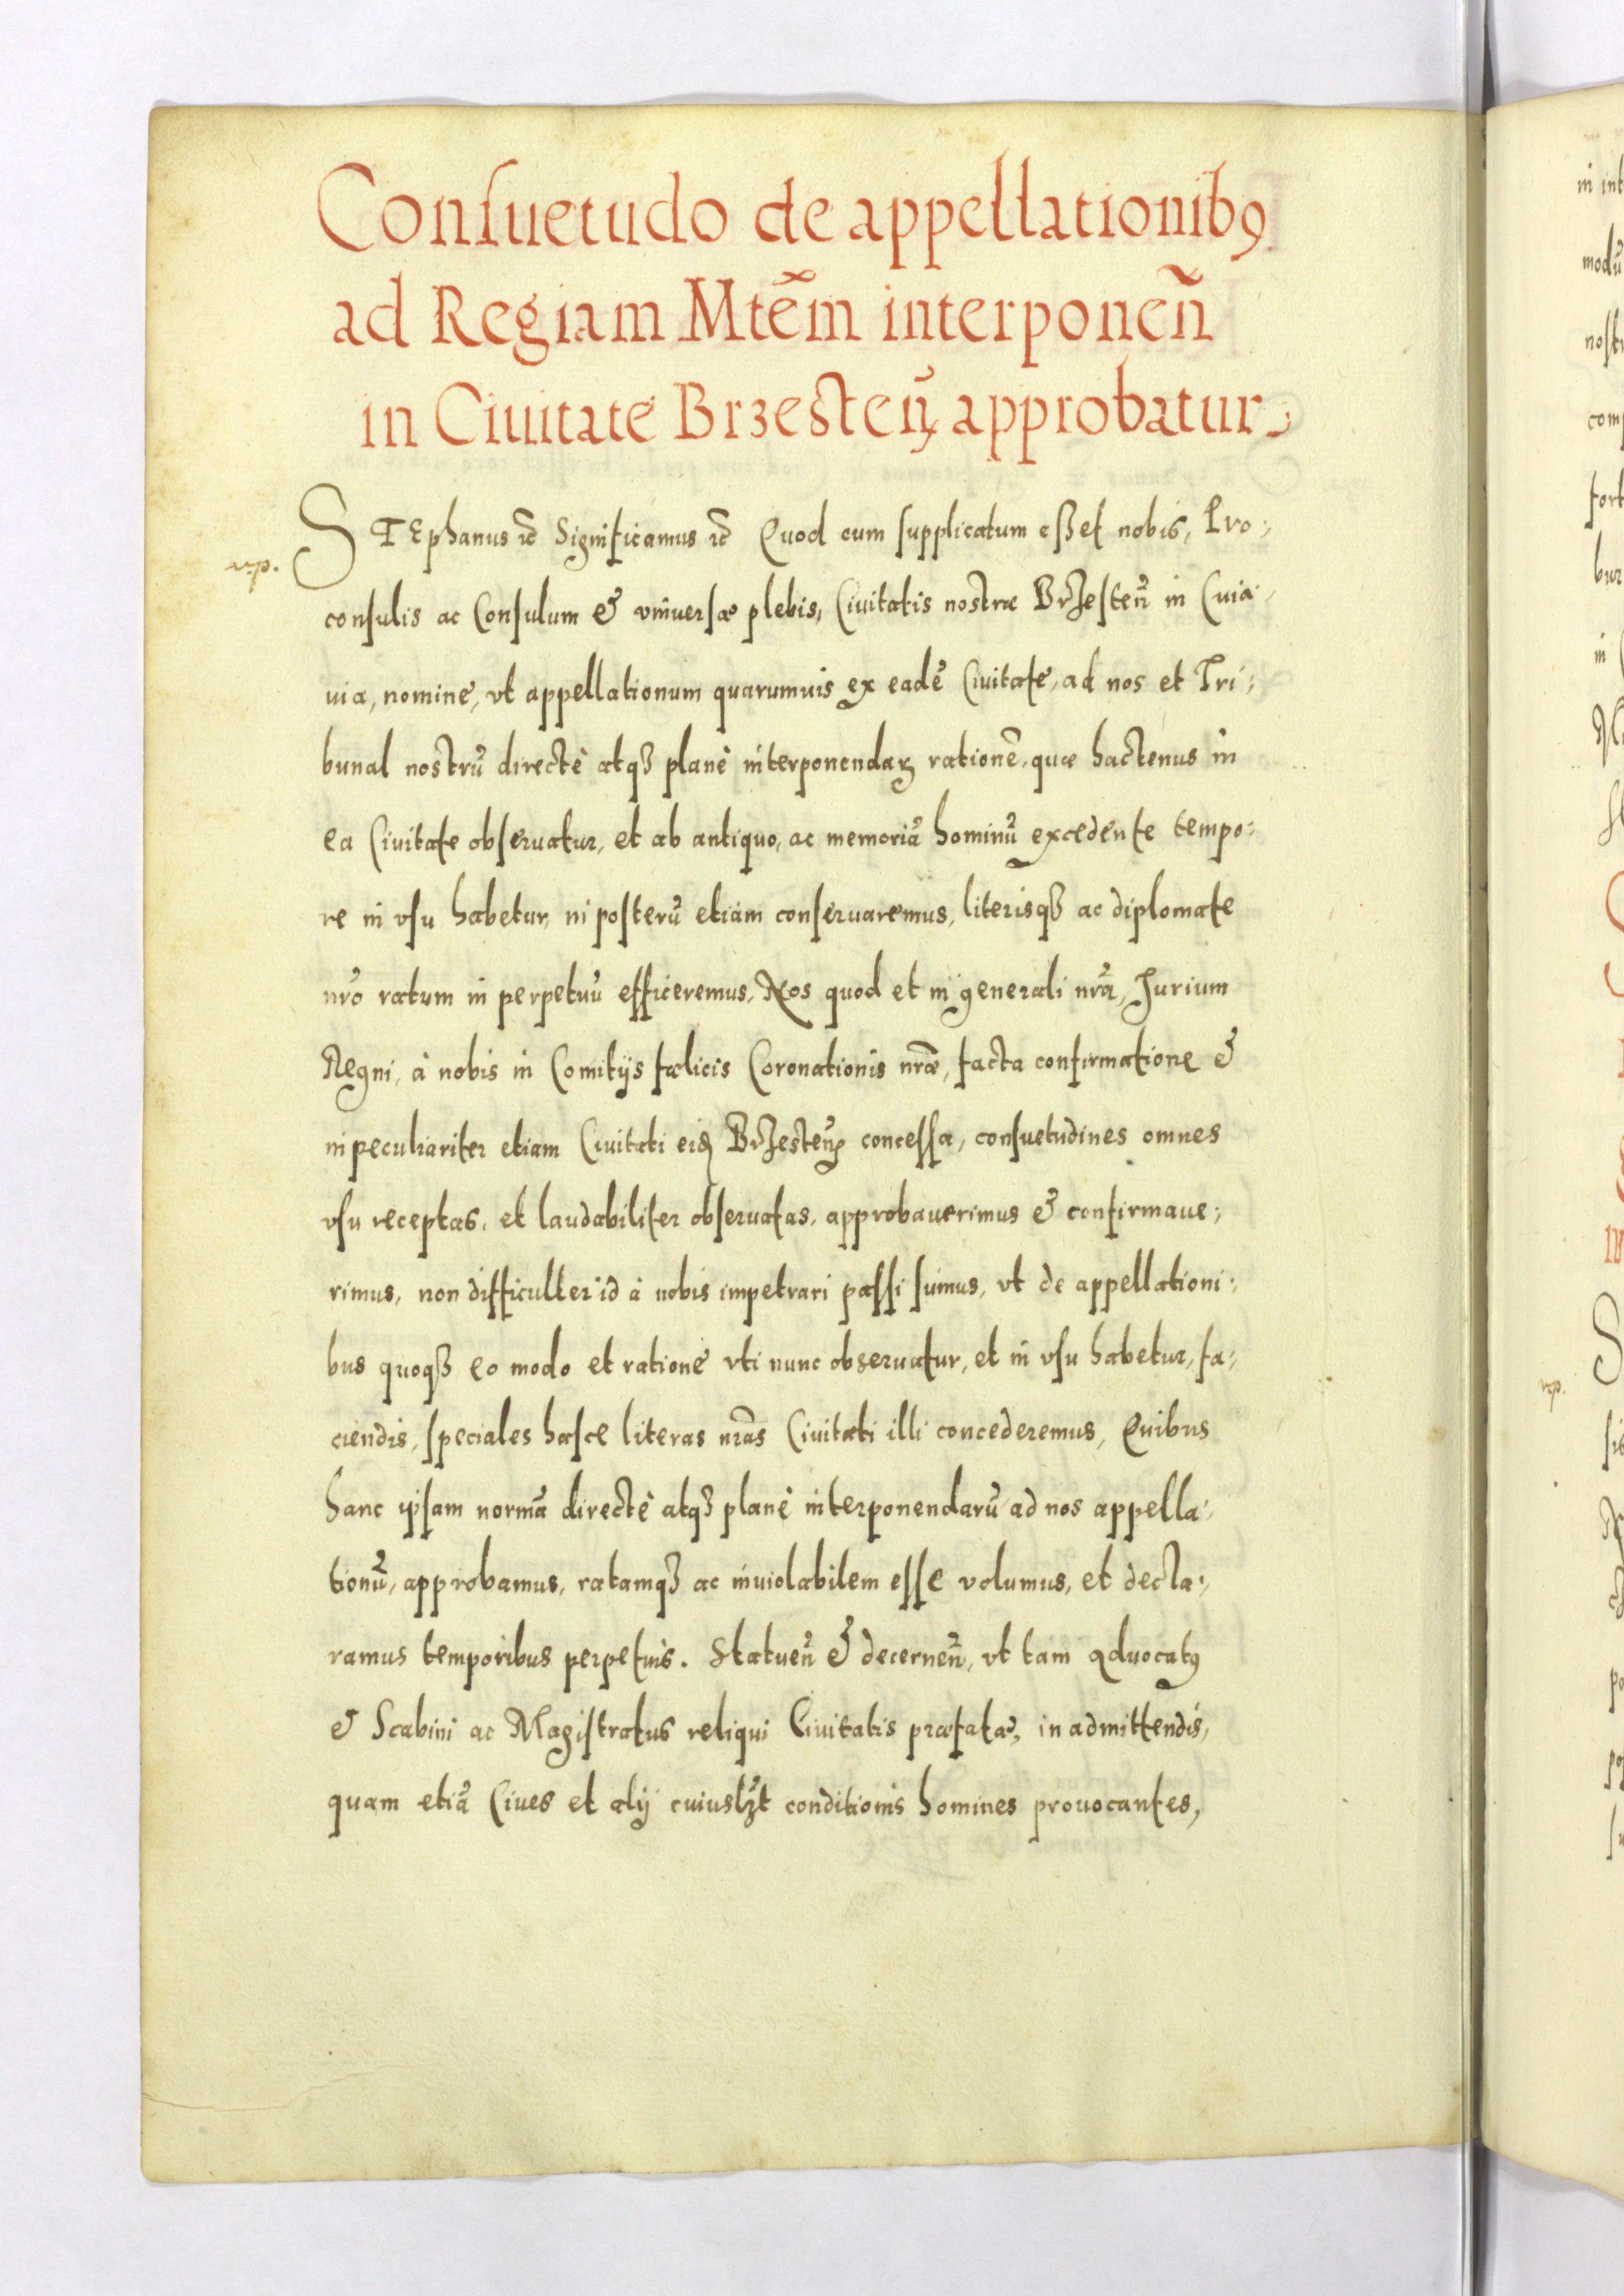 Conſuetudo de appellationibꝰ
ad Regiam Mtẽm interponeñ
in Ciuitate Brzesteñ approbatur
STEphanus ꝛc̃ Significamus ꝛc̃ Quod cum ſupplicatum eßet nobis, Pro-
rꝑ.
conſulis ac Conſulum & vniuerſæ plebis, Ciuitatis nostræ Brzeſteñ in Cuia-
uia, nomine, vt appellationum quarumuis ex eadẽ Ciuitate, ad nos et Tri-
bunal nostrũ directè atqꝫ planè interponendaꝝ rationẽ, quæ hactenus in
ea Ciuitate obſeruatur, et ab antiquo, ac memoriã hominũ excedente tempo-
re in vſu habetur, in poſterũ etiam conſeruaremus, literisqꝫ ac diplomate
nr̃o ratum in perpetuũ efficeremus, Nos quod et in generali nr̃a, Jurium
Regni, à nobis in Comitijs fœlicis Coronationis nr̃æ, facta confirmatione &
in peculiariter etiam Ciuitati eiđ Brzesteñ conceſſa, conſuetudines omnes
vſu receptas, et laudabiliter obſeruatas, approbauerimus & confirmaue-
rimus, non difficulter id à nobis impetrari paſſi ſumus, vt de appellationi-
bus quoqꝫ eo modo et ratione vti nunc obseruatur, et in vſu habetur, fa-
ciendis, ſpeciales haſce literas nr̃as Ciuitati illi concederemus, Quibus
hanc ipſam normã directè atqꝫ planè interponendarũ ad nos appella-
tionũ, approbamus, ratamqꝫ ac inuiolabilem eſſe volumus, et decla-
ramus temporibus perpetuis. Statueñ & decerneñ, vt tam aduocatꝰ
& Scabini ac Magiſtratus reliqui Ciuitatis præfatæ, in admittendis,
quam etiã Ciues et alij cuiuslꝫt conditionis homines prouocantes,